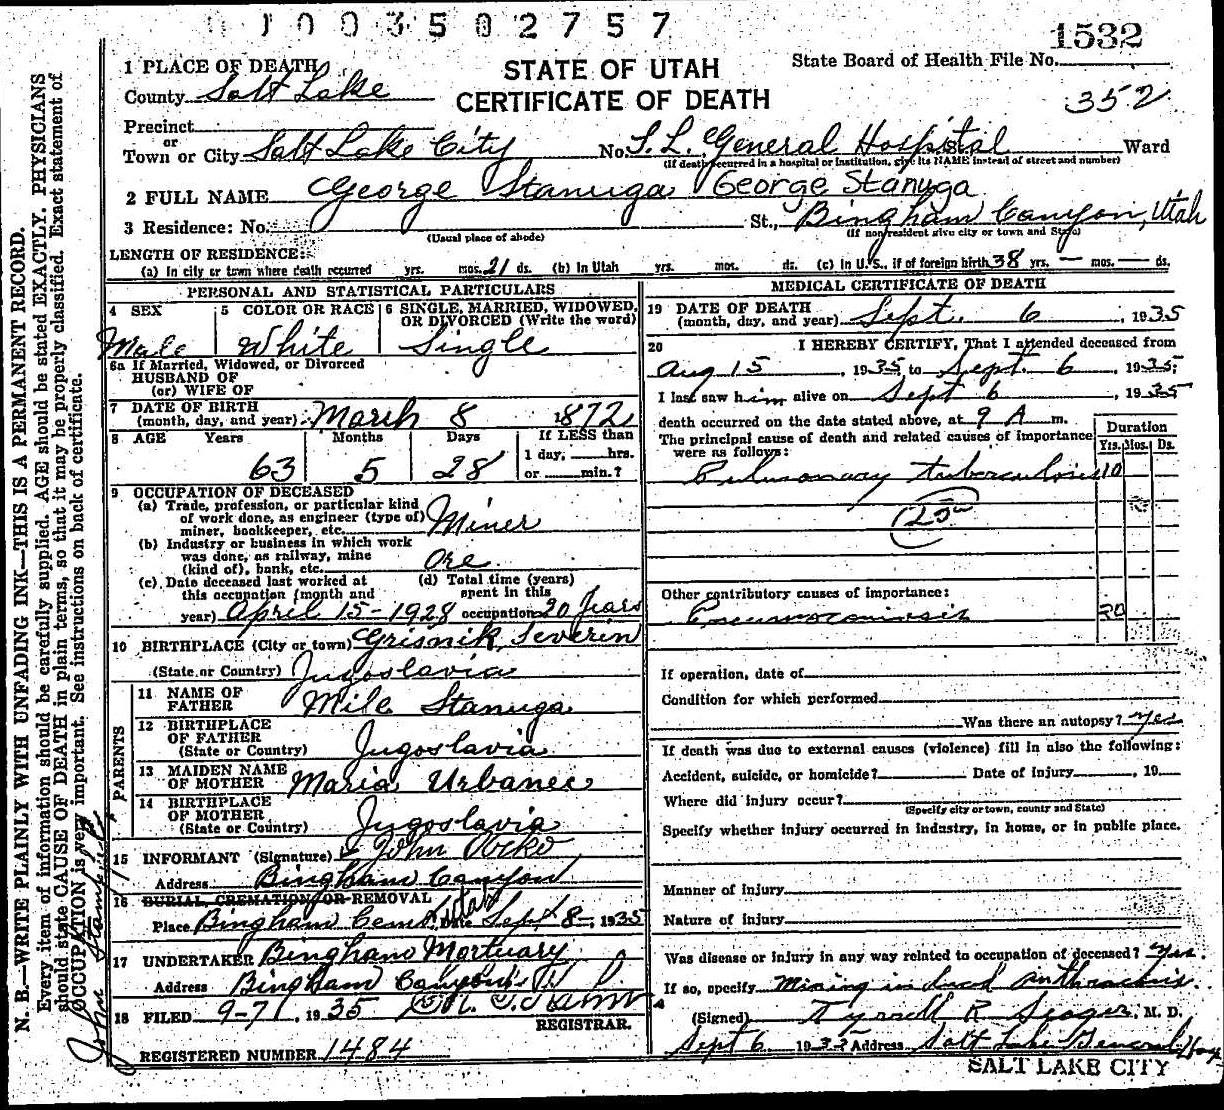 1003502757
1532
1 PLACE OF DEATH
STATE OF UTAH
State Board of Health File No.
County Salt Lake
CERTIFICATE OF DEATH
352
Precinct
or
Town or City Salt Lake City No. S. L. General Hospital Ward
(If death occurred in a hospital or institution, give its NAME instead of street and number)
2 FULL NAME George Stanuga George Stanuga
3 Residence: No. St., Bingham Canyon, Utah
(Usual place of abode) (If nonresident give city or town and State)
LENGTH OF RESIDENCE:
(a) In city or town where death occurred yrs. mos. 21 ds. (b) In Utah yrs. mos. ds. (c) In U. S., if of foreign birth 38 yrs. — mos. — ds.
PERSONAL AND STATISTICAL PARTICULARS
4 SEX
Male
5 COLOR OR RACE
White
6 SINGLE, MARRIED, WIDOWED,
OR DIVORCED (Write the word)
Single
6a If Married, Widowed, or Divorced
HUSBAND OF
(or) WIFE OF
7 DATE OF BIRTH
(month, day, and year) March 8 1872
8 AGE Years Months Days If LESS than
1 day, hrs.
63 5 28 or min.?
9 OCCUPATION OF DECEASED
(a) Trade, profession, or particular kind
of work done, as engineer (type of)
miner, bookkeeper, etc. Miner
(b) Industry or business in which work
was done, as railway, mine
(kind of), bank, etc. Ore
(c) Date deceased last worked at
this occupation (month and
year) April 15-1928
(d) Total time (years)
spent in this
occupation 20 Years
10 BIRTHPLACE (City or town) Grisnik, Severin
(State or Country) Jugoslavia
PARENTS
11 NAME OF
FATHER Mile Stanuga
12 BIRTHPLACE
OF FATHER
(State or Country) Jugoslavia
13 MAIDEN NAME
OF MOTHER Maria Urbanec
14 BIRTHPLACE
OF MOTHER
(State or Country) Jugoslavia
15 INFORMANT (Signature) John
Address Bingham Canyon
16 BURIAL, CREMATION OR REMOVAL
Place Bingham Cem. Date Sept 8-, 1935
17 UNDERTAKER Bingham Mortuary
Address Bingham Canyon
18 FILED 9-7, 1935
REGISTRAR.
REGISTERED NUMBER 1484
MEDICAL CERTIFICATE OF DEATH
19 DATE OF DEATH
(month, day, and year) Sept. 6, 1935
20 I HEREBY CERTIFY, That I attended deceased from
Aug 15, 1935 to Sept. 6, 1935;
I last saw him alive on Sept 6, 1935
death occurred on the date stated above, at 9 A m.
The principal cause of death and related causes of importance
were as follows:
Duration
Yrs. Mos. Ds.
Pulmonary tuberculosis 10
Other contributory causes of importance:
Pneumoconiosis 20
If operation, date of
Condition for which performed
Was there an autopsy? Yes
If death was due to external causes (violence) fill in also the following:
Accident, suicide, or homicide? Date of injury , 19
Where did injury occur?
(Specify city or town, county and State)
Specify whether injury occurred in industry, in home, or in public place.
Manner of injury
Nature of injury
Was disease or injury in any way related to occupation of deceased? Yes.
If so, specify Mining induced anthracosis.
(Signed) Tyrrell R Seager, M. D.
Sept 6 1935 Address Salt Lake General Hosp
SALT LAKE CITY
N. B.—WRITE PLAINLY WITH UNFADING INK—THIS IS A PERMANENT RECORD.
Every item of information should be carefully supplied. AGE should be stated EXACTLY. PHYSICIANS
should state CAUSE OF DEATH in plain terms, so that it may be properly classified. Exact statement of
OCCUPATION is very important. See instructions on back of certificate.
John